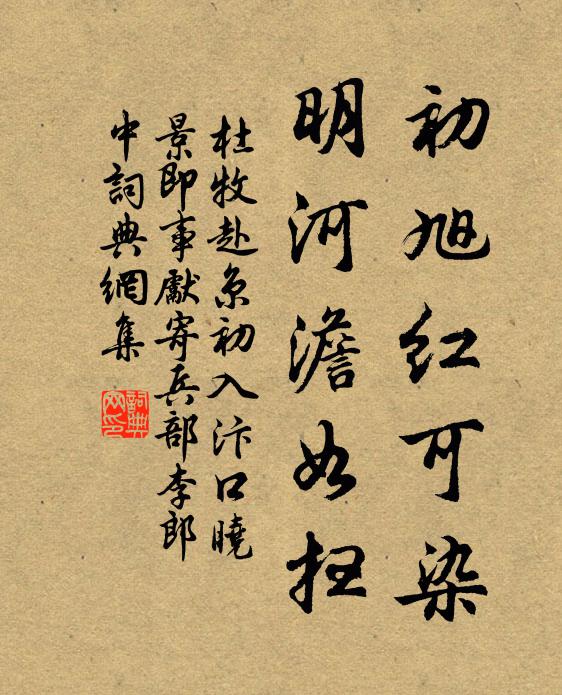 初旭红可染
明河澹如扫
杜牧赴京初入汴口曉
景即事獻寄兵部李郎
中詞典網集
詞典
网印